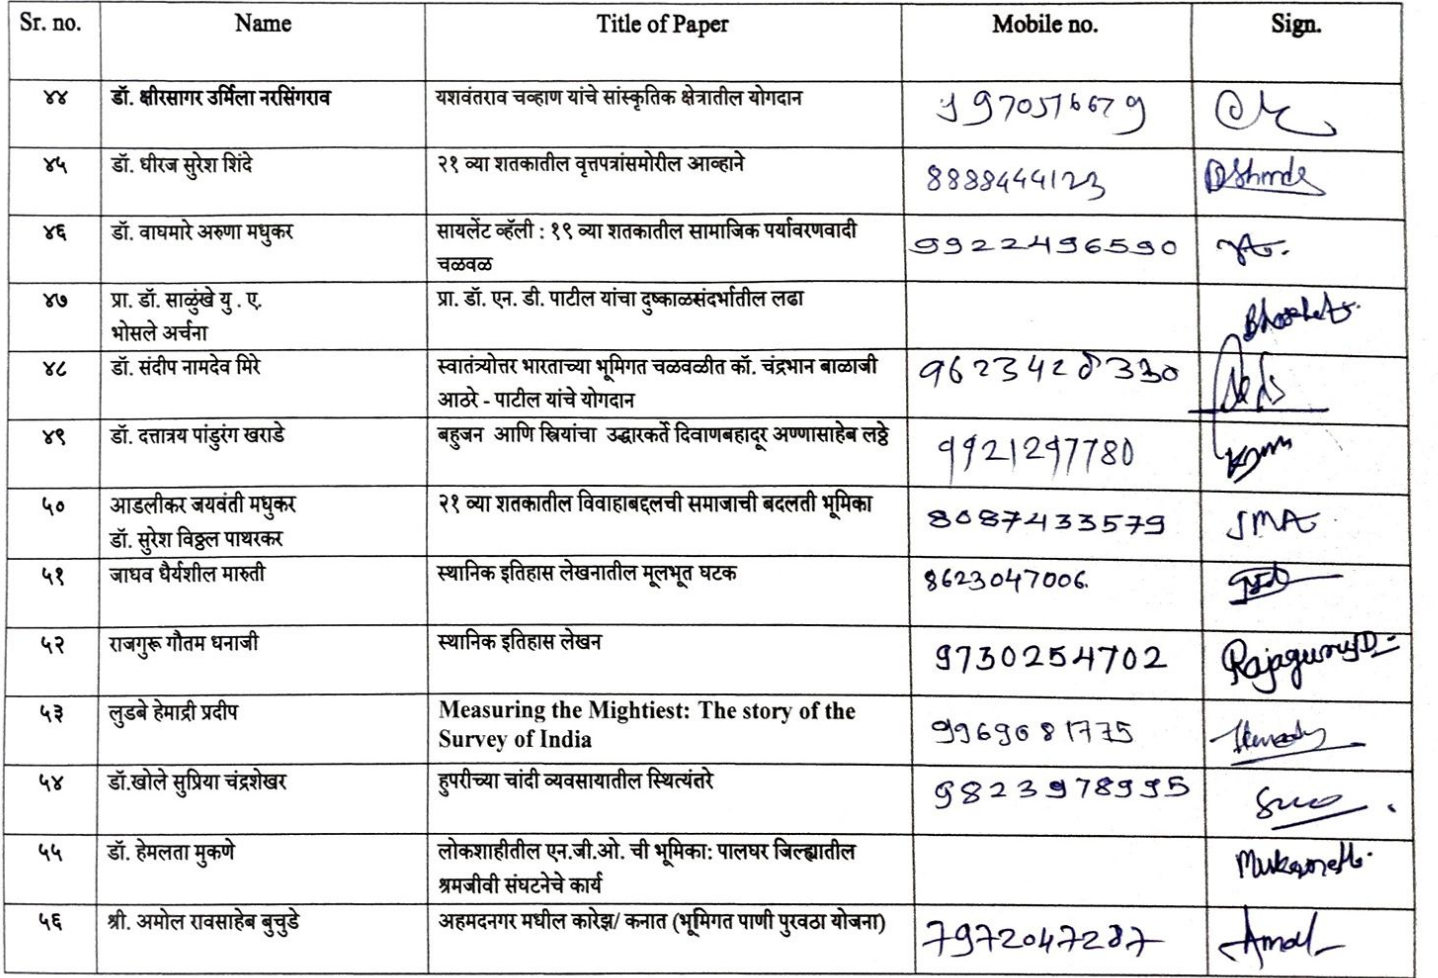 Sr. no. Name Title of Paper Mobile no. Sign.
४४ डॉ. क्षीरसागर उर्मिला नरसिंगराव यशवंतराव चव्हाण यांचे सांस्कृतिक क्षेत्रातील योगदान
४५ डॉ. धीरज सुरेश शिंदे २१ व्या शतकातील वृत्तपत्रांसमोरील आव्हाने 8888444123 DShinde
४६ डॉ. वाघमारे अरुणा मधुकर सायलेंट व्हॅली : १९ व्या शतकातील सामाजिक पर्यावरणवादी 9922496590
चळवळ
४७ प्रा. डॉ. साळुंखे यु . ए. प्रा. डॉ. एन. डी. पाटील यांचा दुष्काळसंदर्भातील लढा
भोसले अर्चना
४८ डॉ. संदीप नामदेव मिरे स्वातंत्र्योत्तर भारताच्या भूमिगत चळवळीत कॉ. चंद्रभान बाळाजी
आठरे - पाटील यांचे योगदान
४९ डॉ. दत्तात्रय पांडुरंग खराडे बहुजन आणि स्त्रियांचा उद्धारकर्ते दिवाणबहादूर अण्णासाहेब लठ्ठे
५० आडलीकर जयवंती मधुकर २१ व्या शतकातील विवाहाबद्दलची समाजाची बदलती भूमिका 8087433579 JMA
डॉ. सुरेश विठ्ठल पाथरकर
५१ जाधव धैर्यशील मारुती स्थानिक इतिहास लेखनातील मूलभूत घटक 8623047006.
५२ राजगुरू गौतम धनाजी स्थानिक इतिहास लेखन 9730254702
५३ लुडबे हेमाद्री प्रदीप Measuring the Mightiest: The story of the 9969681775
Survey of India
५४ डॉ.खोले सुप्रिया चंद्रशेखर हुपरीच्या चांदी व्यवसायातील स्थित्यंतरे 9823978995
५५ डॉ. हेमलता मुकणे लोकशाहीतील एन.जी.ओ. ची भूमिका: पालघर जिल्ह्यातील
श्रमजीवी संघटनेचे कार्य
५६ श्री. अमोल रावसाहेब बुचुडे अहमदनगर मधील कारेझ/ कनात (भूमिगत पाणी पुरवठा योजना) 7972047287 Amol